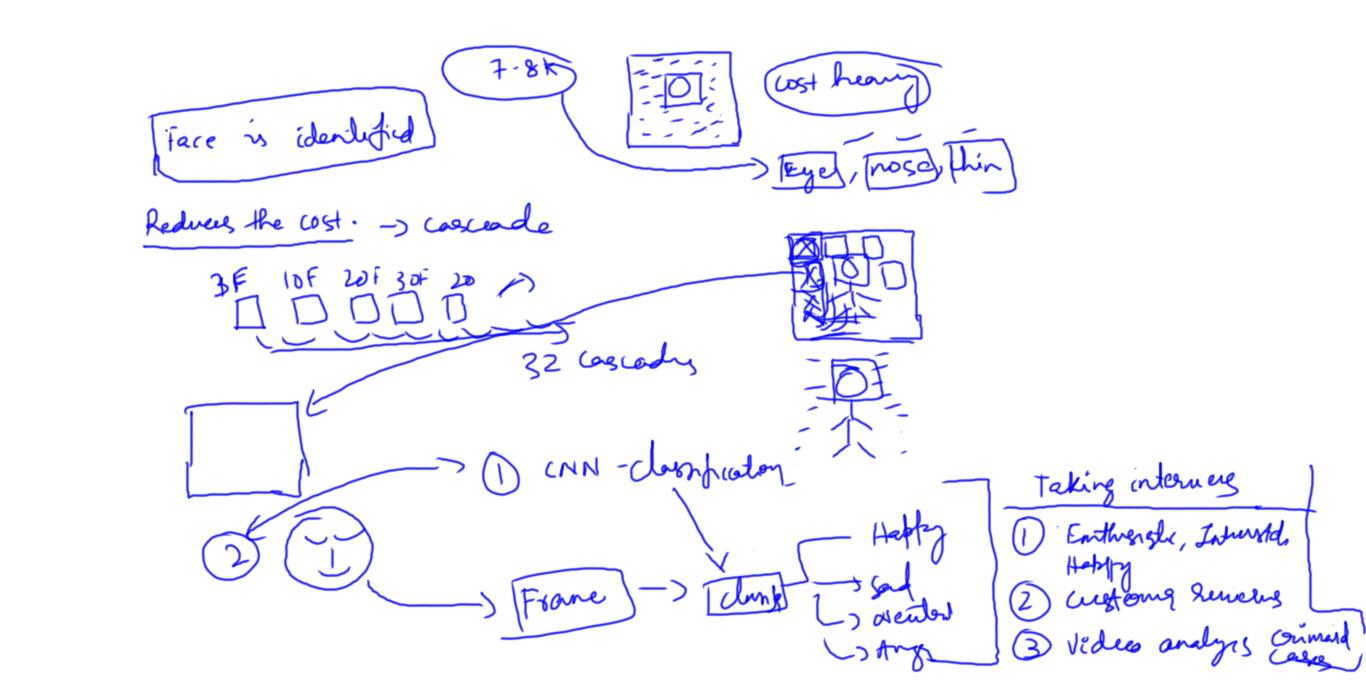 7-8k
cost heavy
Face is identified
Eyes, nose, chin
Reduces the cost. → cascade
3F 10F 20F 30F 20
32 cascades
① CNN - classification
②
Frame →
Happy
Sad
Neutral
Angry
Taking interviews
① Enthusiastic, Interested,
Happy
② Customer Reviews
③ Video analysis Criminal
Cases